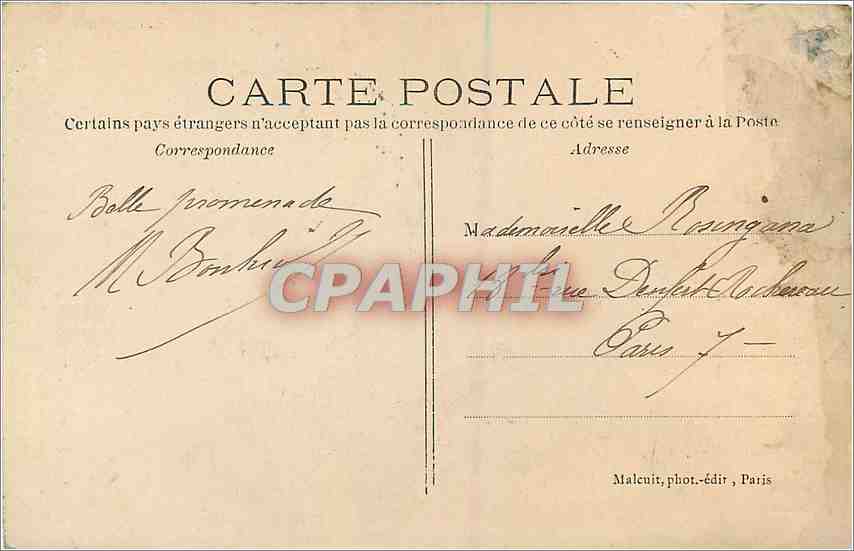 CARTE POSTALE
Certains pays étrangers n'acceptant pas la correspondance de ce côté se renseigner à la Poste
Correspondance
Adresse
Belle promenade
M
Mademoiselle Rosengana
rue Denfert Rochereau
Paris 7
CPAPHIL
Malcuit, phot.-édit, Paris